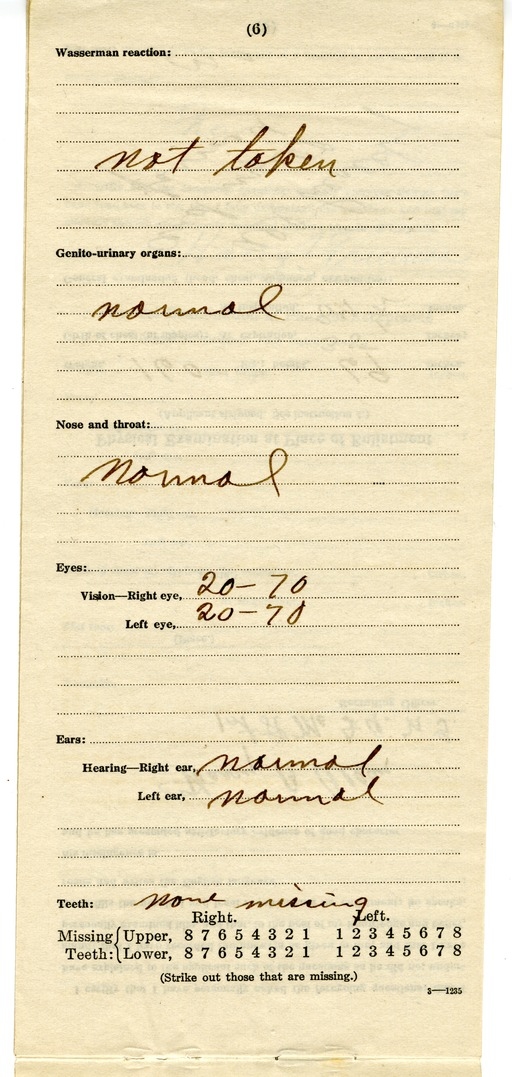 (6)
Wasserman reaction:
not taken
Genito-urinary organs:
normal
Nose and throat:
Normal
Eyes:
Vision—Right eye, 20-70
Left eye, 20-70
Ears:
Hearing—Right ear, normal
Left ear, normal
Teeth: none missing
Right. Left.
Missing Teeth: Upper, 8 7 6 5 4 3 2 1 1 2 3 4 5 6 7 8
Lower, 8 7 6 5 4 3 2 1 1 2 3 4 5 6 7 8
(Strike out those that are missing.)
3—1235